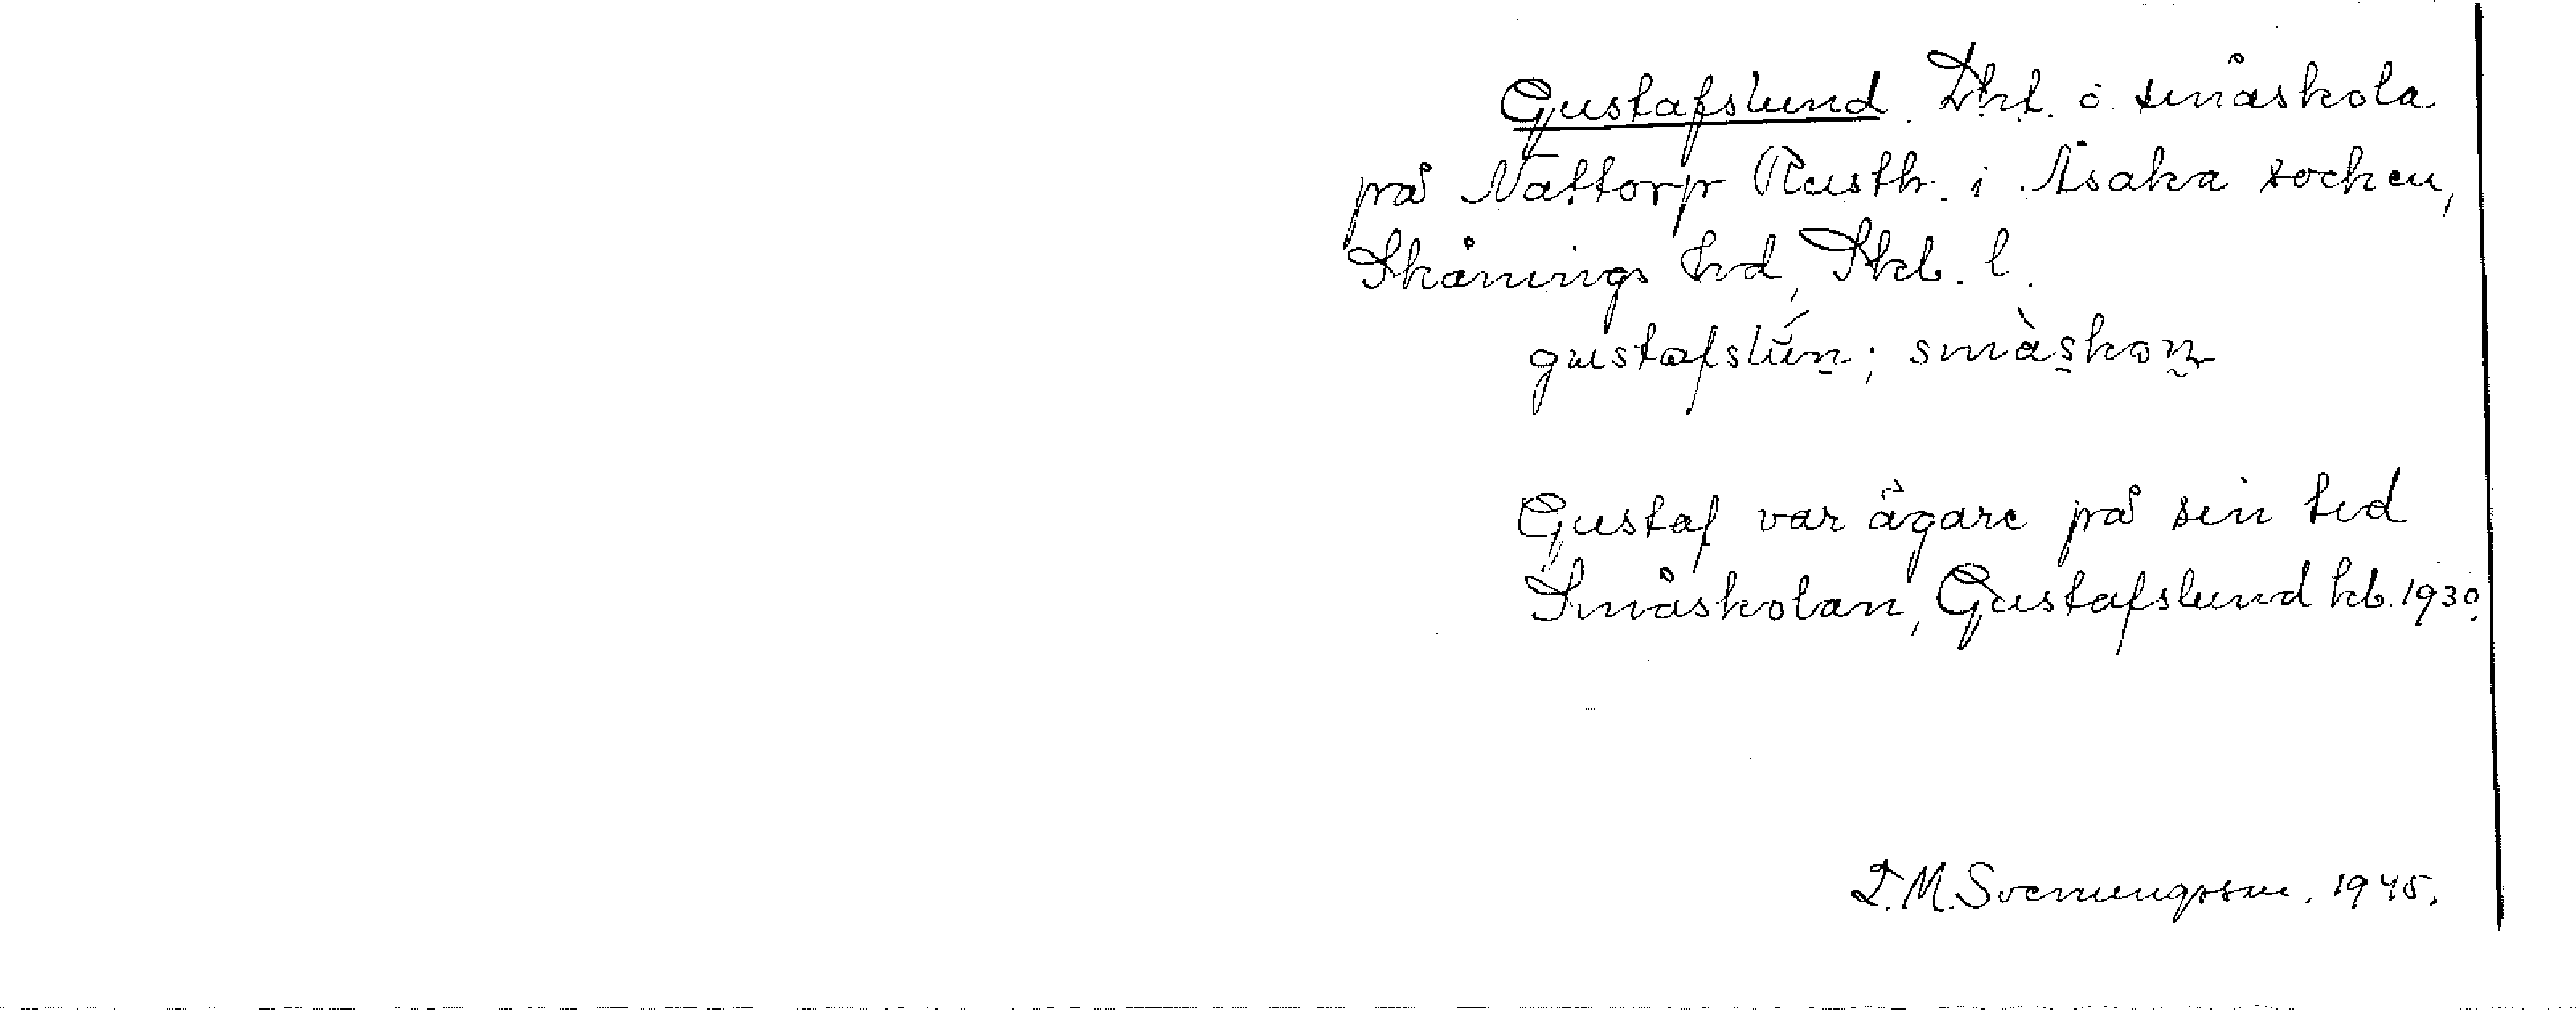 Gustafslund. Lht. o. småskola
på Nattorp Rusth. i Åsaka socken,
Skånings hd, Skb. l.
gustafslún; smàskon
Gustaf var ägare på sin tid
Småskolan, Gustafslund kb. 1930.
D.M. Svenungsson. 1945.